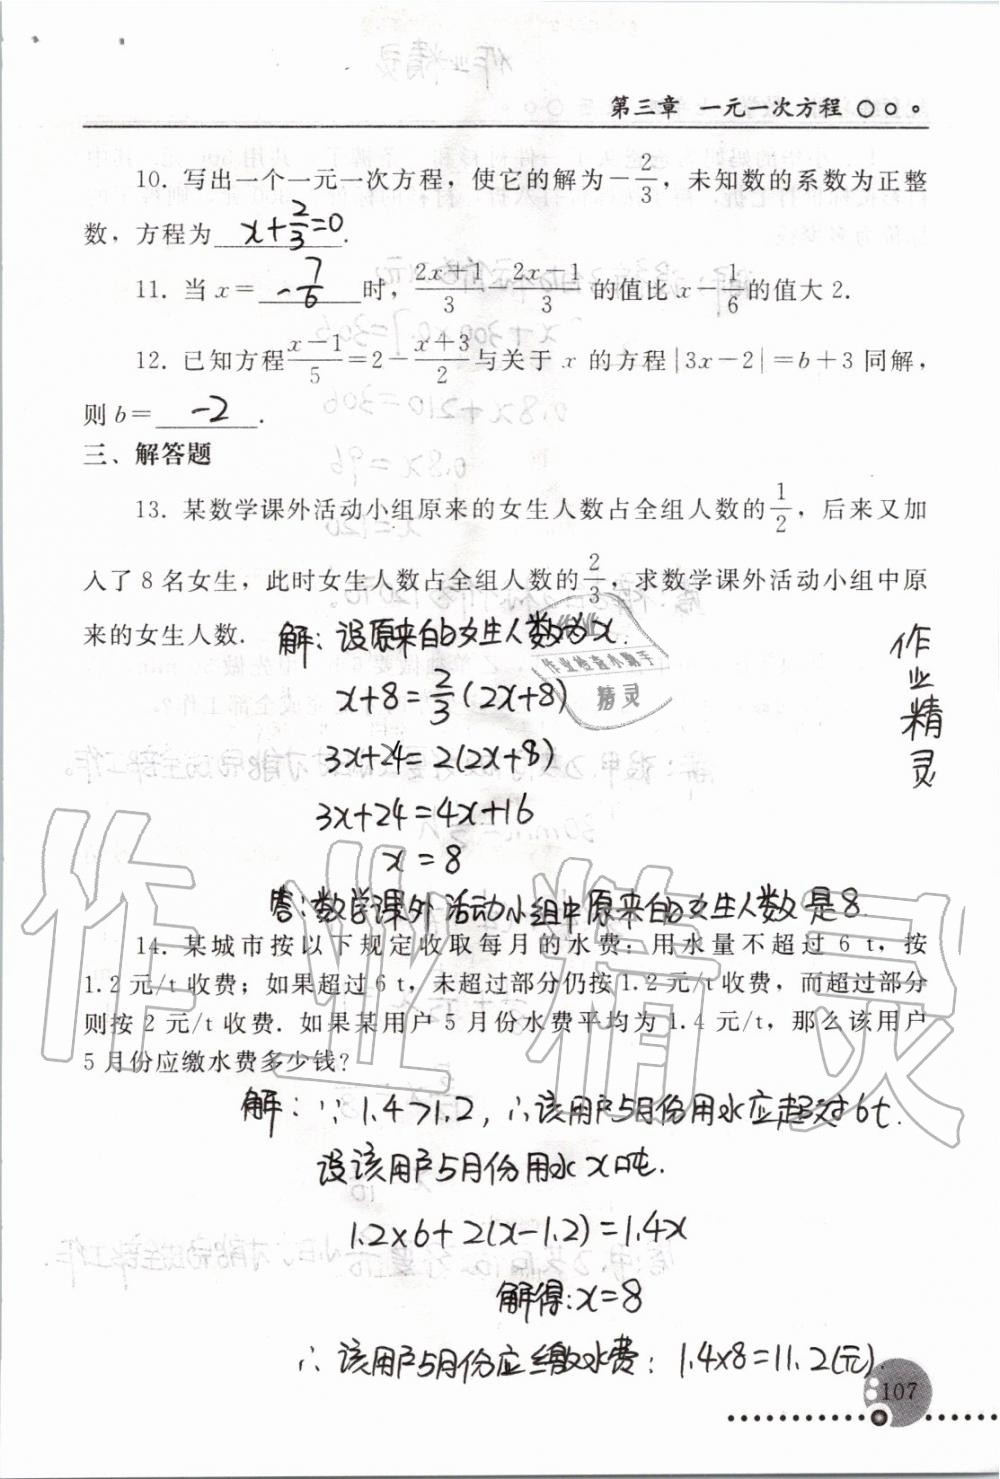 作业精灵
第三章 一元一次方程
10. 写出一个一元一次方程，使它的解为－2/3，未知数的系数为正整
数，方程为 x+2/3=0 .
11. 当 x= -7/6 时，(2x+1)/3－(2x－1)/3 的值比 x－1/6 的值大 2.
12. 已知方程 (x－1)/5=2－(x+3)/2 与关于 x 的方程|3x－2|=b+3 同解，
则 b= -2 .
三、解答题
13. 某数学课外活动小组原来的女生人数占全组人数的1/2，后来又加
入了 8 名女生，此时女生人数占全组人数的2/3，求数学课外活动小组中原
来的女生人数.
解：设原来的女生人数为x.
x+8=2/3(2x+8)
3x+24=2(2x+8)
3x+24=4x+16
x=8
答：数学课外活动小组中原来的女生人数是8.
作业精灵
作业检查小助手
精灵
14. 某城市按以下规定收取每月的水费：用水量不超过 6 t，按
1.2 元/t 收费；如果超过 6 t，未超过部分仍按 1.2 元/t 收费，而超过部分
则按 2 元/t 收费. 如果某用户 5 月份水费平均为 1.4 元/t，那么该用户
5 月份应缴水费多少钱?
解：∵1.4>1.2，∴该用户5月份用水应超过6t.
设该用户5月份用水x吨.
1.2×6+2(x-1.2)=1.4x
解得：x=8
∴该用户5月份应缴水费：1.4×8=11.2(元).
107
作业精灵